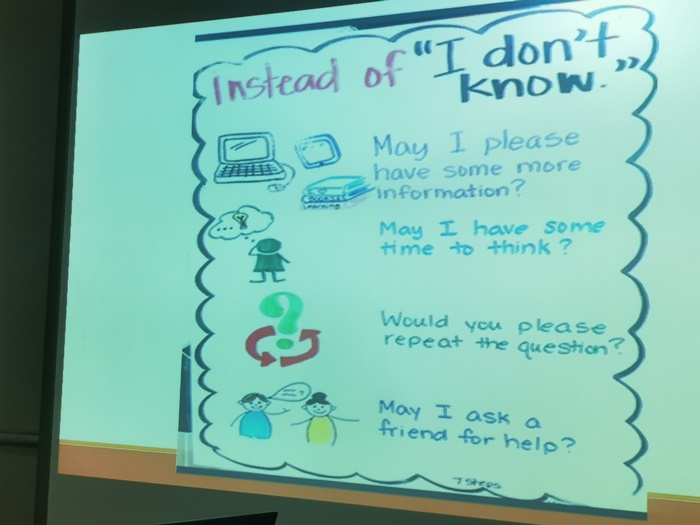 Instead of "I don't
know."
May I please
have some more
information?
Learning
May I have some
time to think?
Would you please
repeat the question?
May I ask a
friend for help?
7 Steps